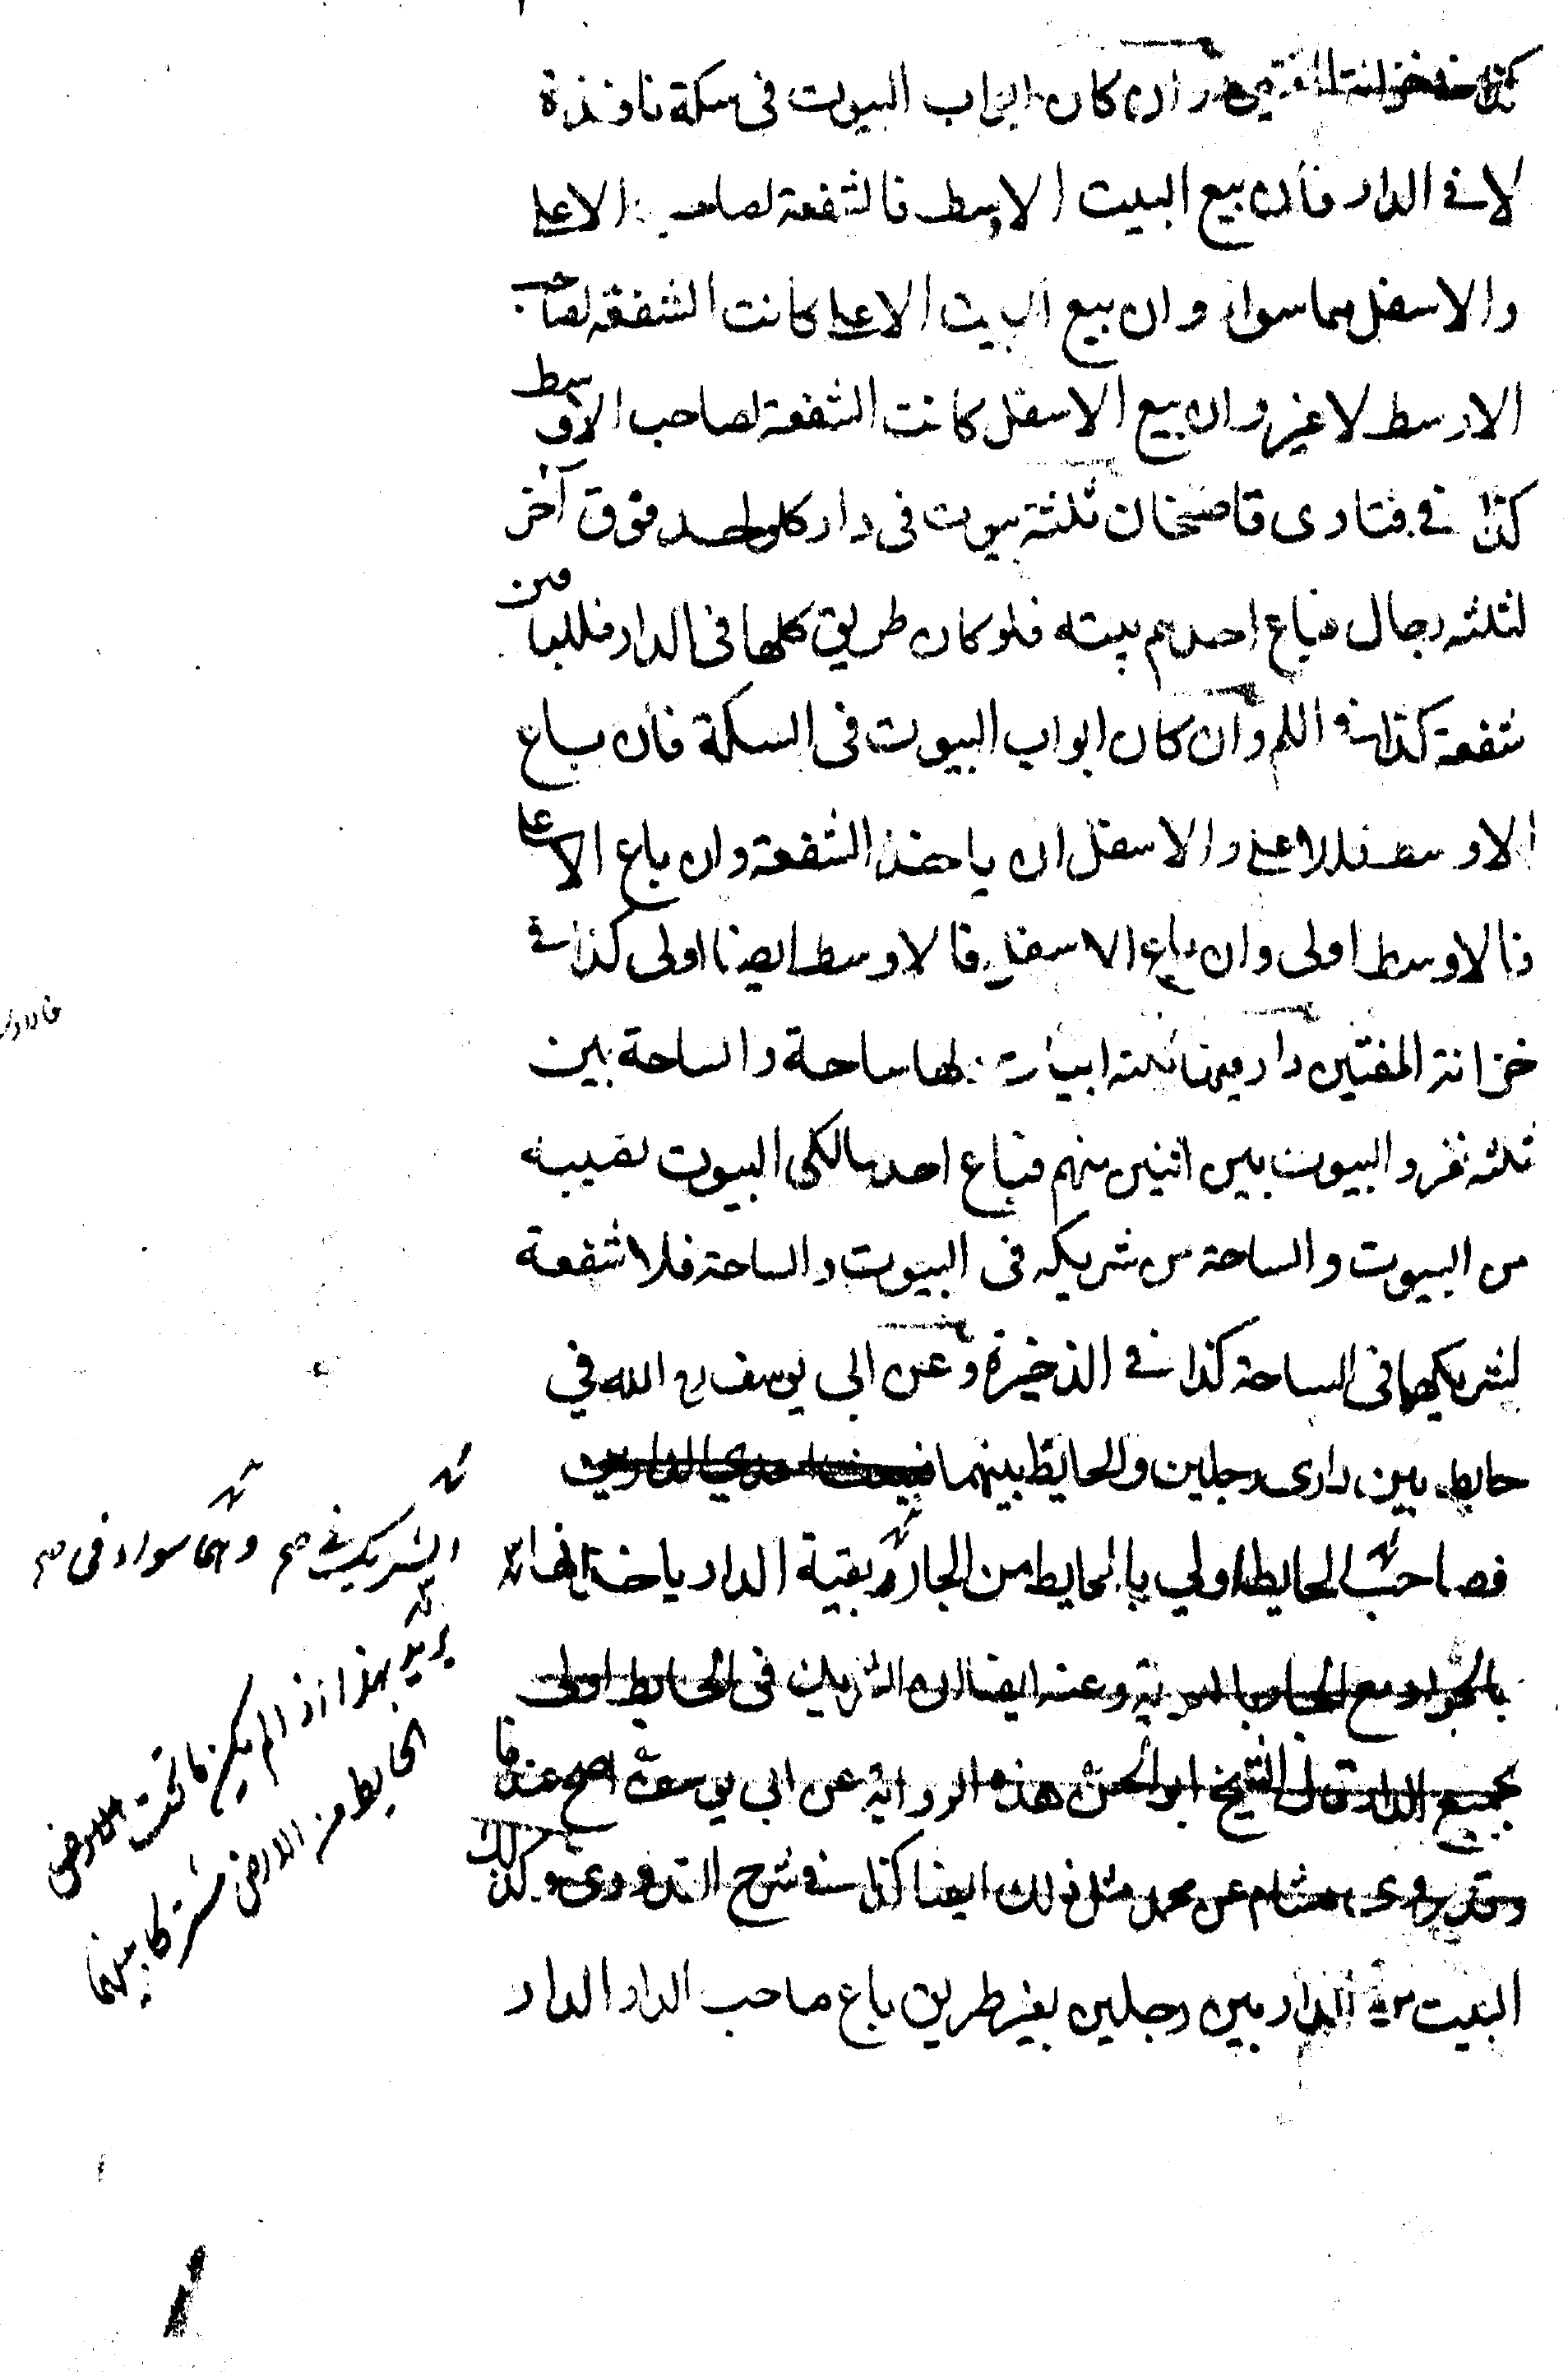 كذا في خزانة المفتين وان كان ابواب البيوت فى سكة نافذة
لا في الدار فان بيع البيت الاوسط فالشفعة لصاحب الاعلى
والاسفل هما سواء وان بيع البيت الاعلى كانت الشفعة لصاحب
الاوسط لا غير وان بيع الاسفل كانت الشفعة لصاحب الاوسط
كذا في فتاوى قاضخان ثلثة بيوت فى دار كل واحد فوق آخر
لثلثة رجال فباع احدهم بيته فلو كان طريق كلها فى الدار فللباقين
شفعة كذا في وان كان ابواب البيوت فى السكة فان باع
الاوسط فللاعلى والاسفل ان ياخذا الشفعة وان باع الاعلى
فالاوسط اولى وان باع الاسفل فالاوسط ايضا اولى كذا في
خزانة المفتين دار فيها ثلثة ابيات لها ساحة والساحة بين
ثلثة نفر والبيوت بين اثنين منهم فباع احد مالكى البيوت نصيبه
من البيوت والساحة من شريكه فى البيوت والساحة فلا شفعة
لشريكهما فى الساحة كذا في الذخيرة وعن ابى يوسف رح الله في
حايط بين دارى رجلين والحايط بينهما
فصاحب الحايط اولي بالحايط من الجار وبقية الدار ياخذ
بالجوار مع الجار وعنه ايضا ان الشريك فى الحايط اولى
بجميع الدار قال الشيخ ابو الحسن هذه الرواية عن ابى يوسف اصح عندنا
وقد روى هشام عن محمد مثل ذلك ايضا كذا في شرح القدورى وكذلك
البيت من الدار بين رجلين بغير طريق باع صاحب الدار الدار
الشريك في صح
وهما سواء فى صح
يريد بهذا اذا لم يكن ما تحت
الحايط من الارض مشتركا بينهما